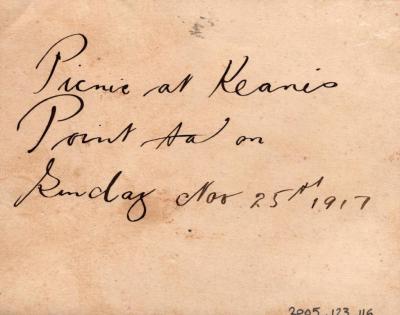 Picnic at Keanis
Point ta' on
Sunday Nov 25th 1917
2005.123.116